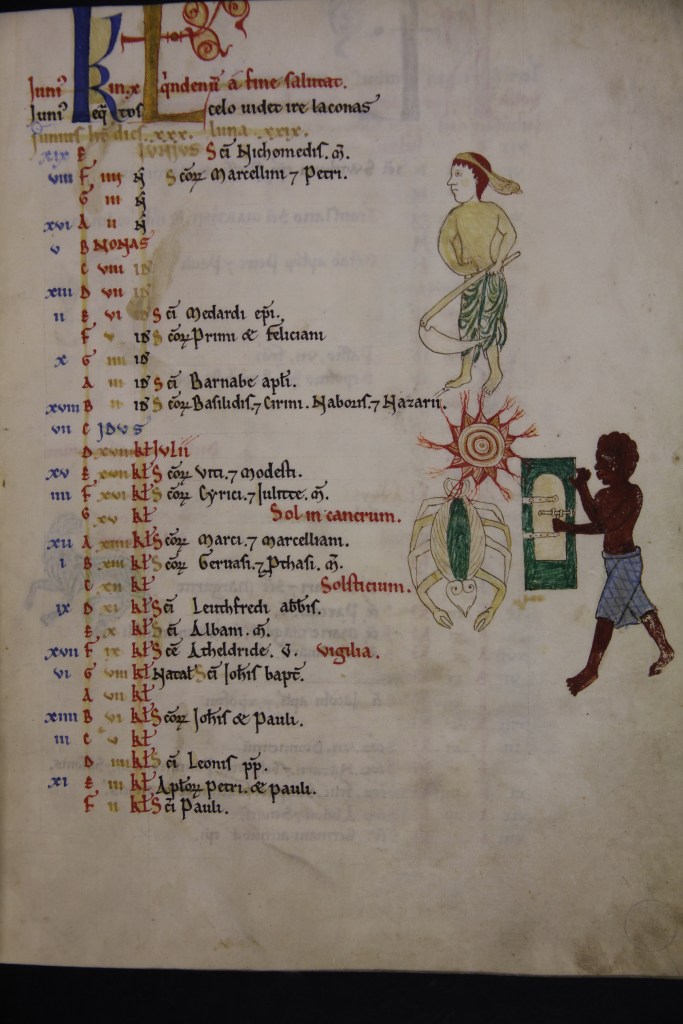 KL
Iuni⁹ in x q̃ndenũ a fine salutat.
Iuni⁹ eq̃tos celo uidet ire laconas
Iunius h̃t dies. xxx. luna. xxix.
xix E IUNIUS Sc̃i Nichomedis. m̃.
viii F iiii N Scoꝝ Marcellini ⁊ Petri.
G iii N
xvi A ii N
v B NONAS
C viii id
xiii D vii id
ii E vi id Sc̃i Medardi ep̃i.
F v id Scoꝝ Primi & Feliciani
x G iiii id
A iii id Sc̃i Barnabe apl̃i.
xviii B ii id Scoꝝ Basilidis. ⁊ Cirini. Naboris. ⁊ Nazarii.
vii C IDUS
D xviii kł Iulii
xv E xvii kł Scoꝝ Viti. ⁊ Modesti.
iiii F xvi kł Scoꝝ Cyrici. ⁊ Iulitte. m̃.
G xv kł Sol in cancrum.
xii A xiiii kł Scoꝝ Marci. ⁊ Marcelliani.
i B xiii kł Scoꝝ Geruasi. ⁊ Pthasi. m̃.
C xii kł Solsticium.
ix D xi kł Sc̃i Leuthfredi abb̃is.
E x kł Sc̃i Albani. m̃.
xvii F ix kł Sc̃e Atheldride. v. Vigilia.
vi G viii kł Natał Sc̃i Ioh̃is bapt̃.
A vii kł
xiiii B vi kł Scoꝝ Ioh̃is & Pauli.
iii C v kł
D iiii kł Sc̃i Leonis pp̃.
xi E iii kł Apł̃oꝝ Petri. & Pauli.
F ii kł Sc̃i Pauli.